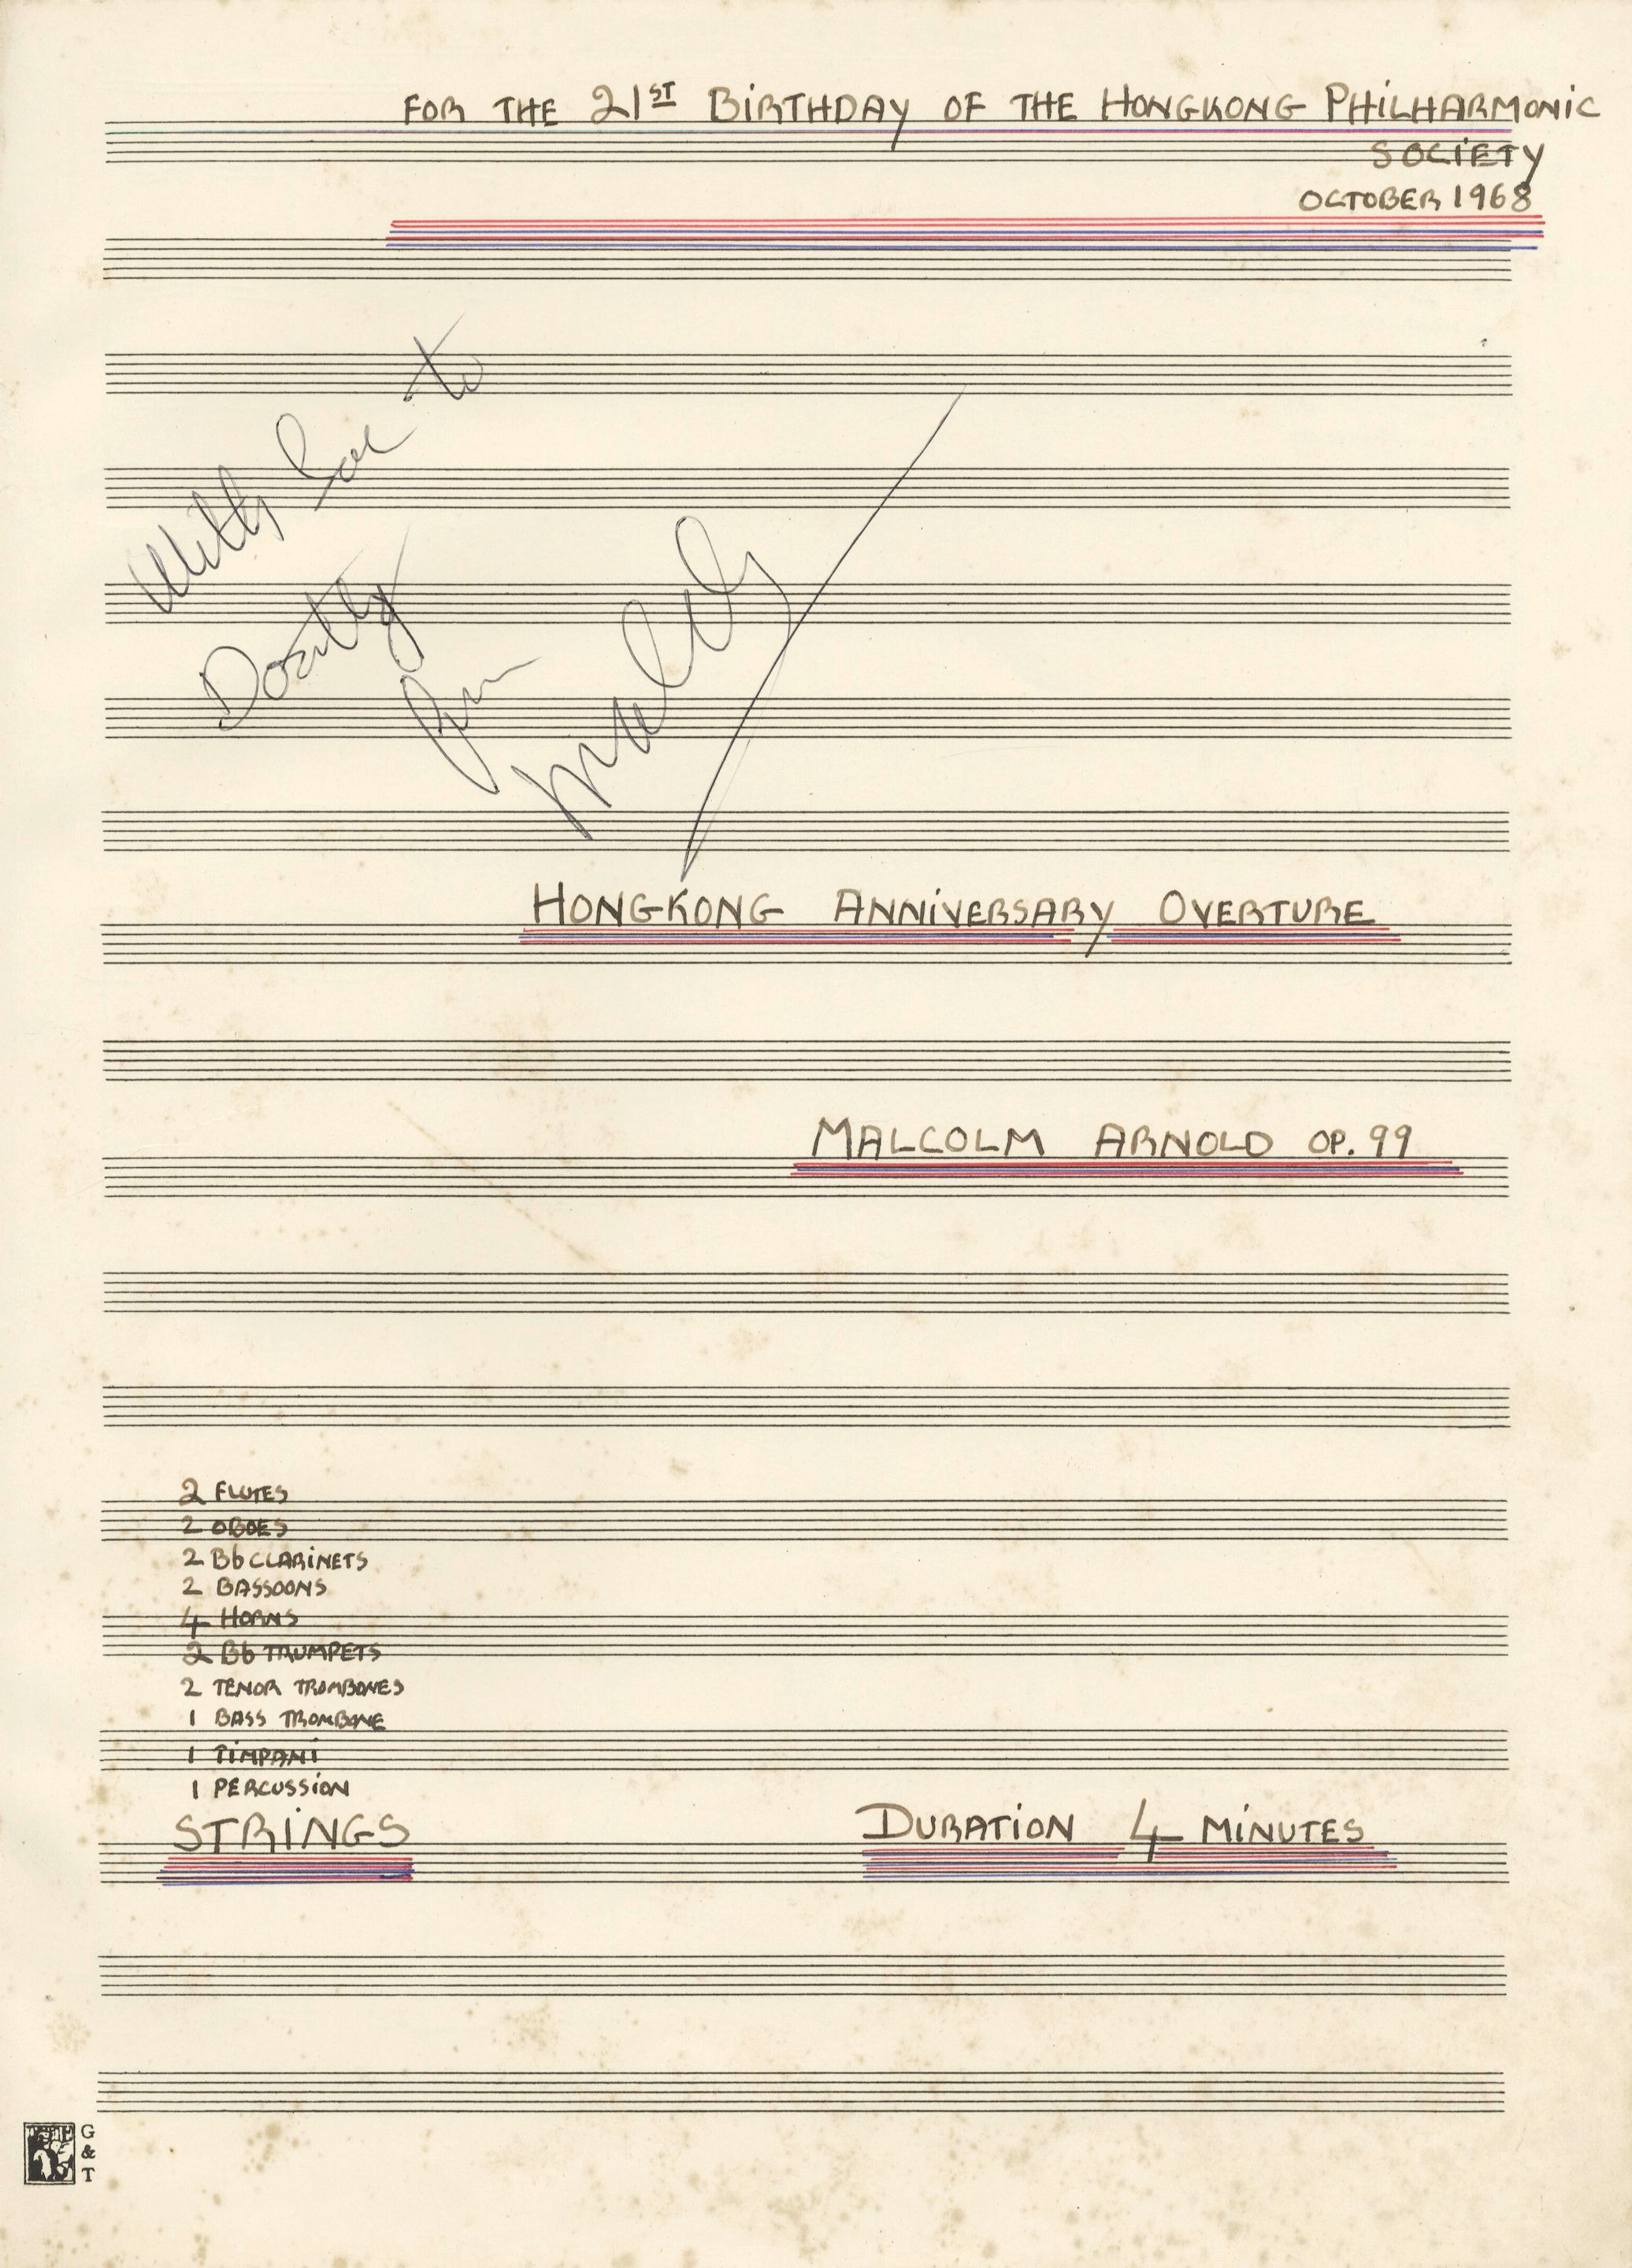 FOR THE 21ST BIRTHDAY OF THE HONGKONG PHILHARMONIC
SOCIETY
OCTOBER 1968
With love to
Dorothy
from
Malcolm
HONGKONG ANNIVERSARY OVERTURE
MALCOLM ARNOLD OP. 99
2 FLUTES
2 OBOES
2 Bb CLARINETS
2 BASSOONS
4 HORNS
2 Bb TRUMPETS
2 TENOR TROMBONES
1 BASS TROMBONE
1 TIMPANI
1 PERCUSSION
STRINGS
DURATION 4 MINUTES
G
&
T